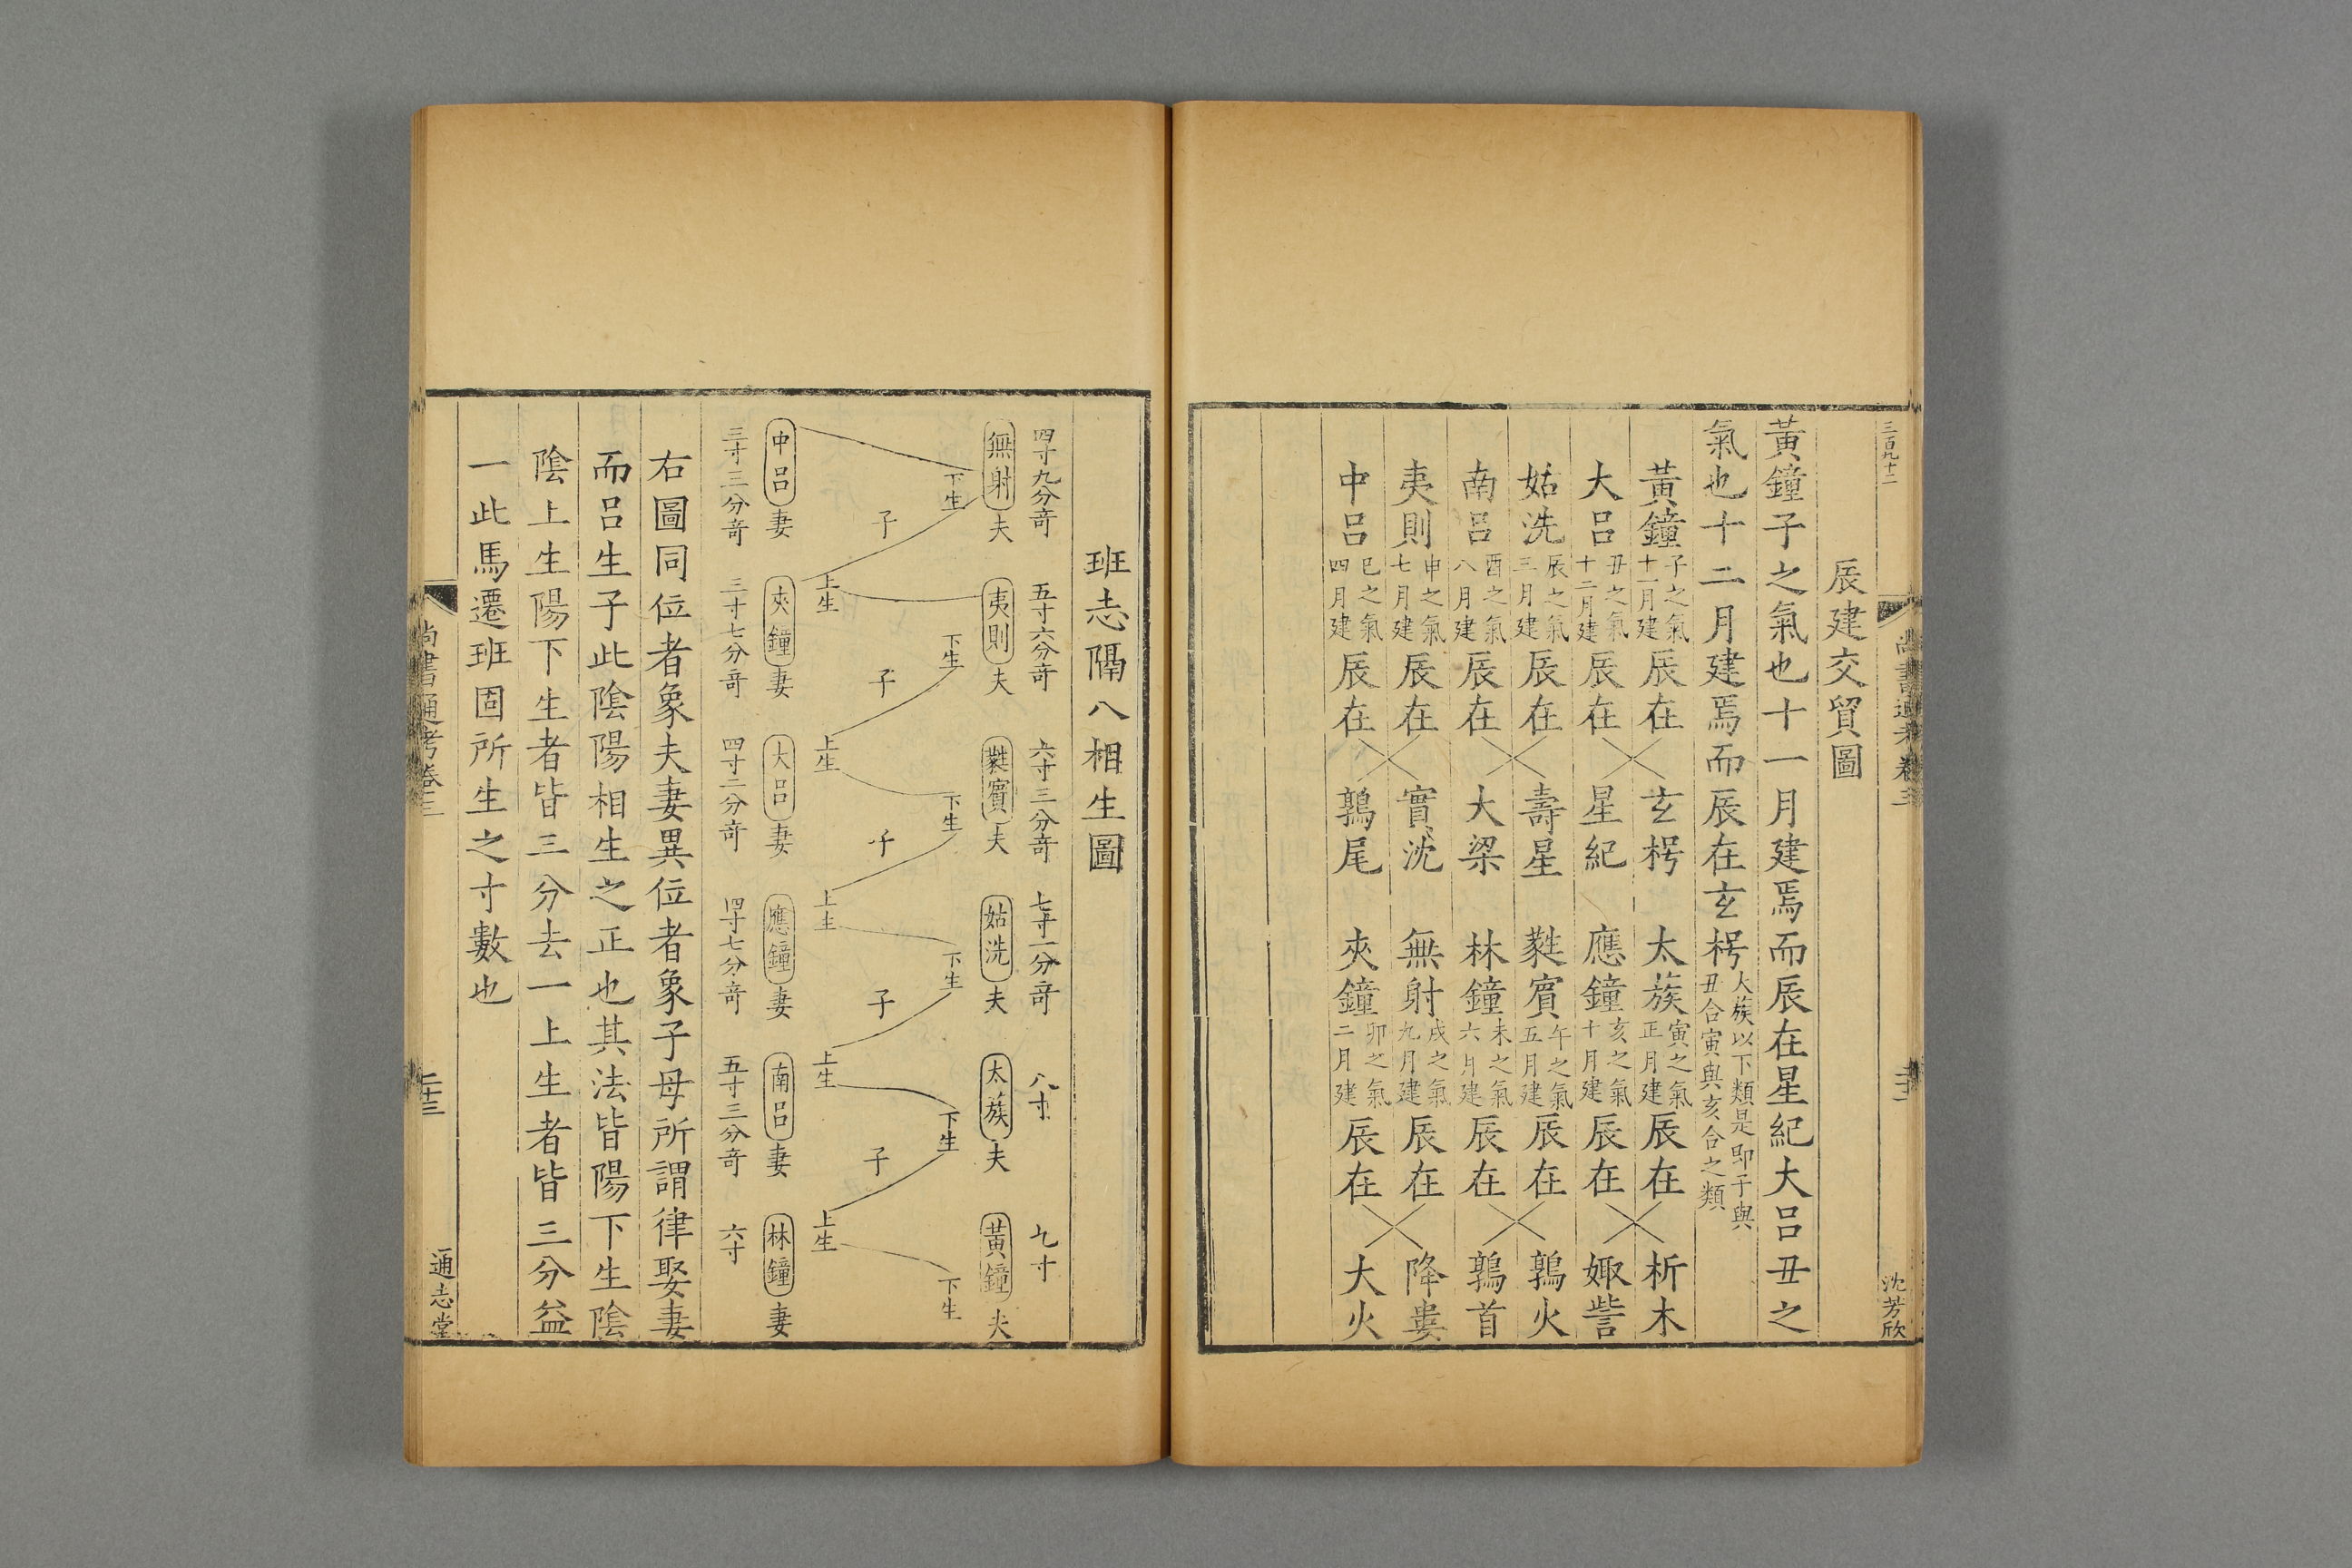 三百九十二
尚書通考卷三
二十二
沈芳欣
辰建交貿圖
黃鐘子之氣也十一月建焉而辰在星紀大呂丑之
氣也十二月建焉而辰在玄枵大蔟以下類是即子與
丑合寅與亥合之類
黃鐘子之氣十一月建辰在玄枵 太蔟寅之氣正月建辰在析木
大呂丑之氣十二月建辰在星紀 應鐘亥之氣十月建辰在娵訾
姑洗辰之氣三月建辰在壽星 蕤賓午之氣五月建辰在鶉火
南呂酉之氣八月建辰在大梁 林鐘未之氣六月建辰在鶉首
夷則申之氣七月建辰在實沈 無射戌之氣九月建辰在降婁
中呂巳之氣四月建辰在鶉尾 夾鐘卯之氣二月建辰在大火
班志隔八相生圖
四寸九分竒 五寸六分竒 六寸三分竒 七寸一分竒 八寸 九寸
無射夫 夷則夫 蕤賓夫 姑洗夫 太蔟夫 黃鐘夫
下生 下生 下生 下生 下生 下生
子 子 子 子 子
上生 上生 上生 上生 上生
中呂妻 夾鐘妻 大呂妻 應鐘妻 南呂妻 林鐘妻
三寸三分竒 三寸七分竒 四寸二分竒 四寸七分竒 五寸三分竒 六寸
右圖同位者象夫妻異位者象子母所謂律娶妻
而呂生子此陰陽相生之正也其法皆陽下生陰
陰上生陽下生者皆三分去一上生者皆三分益
一此馬遷班固所生之寸數也
尚書通考卷三
二十三
通志堂